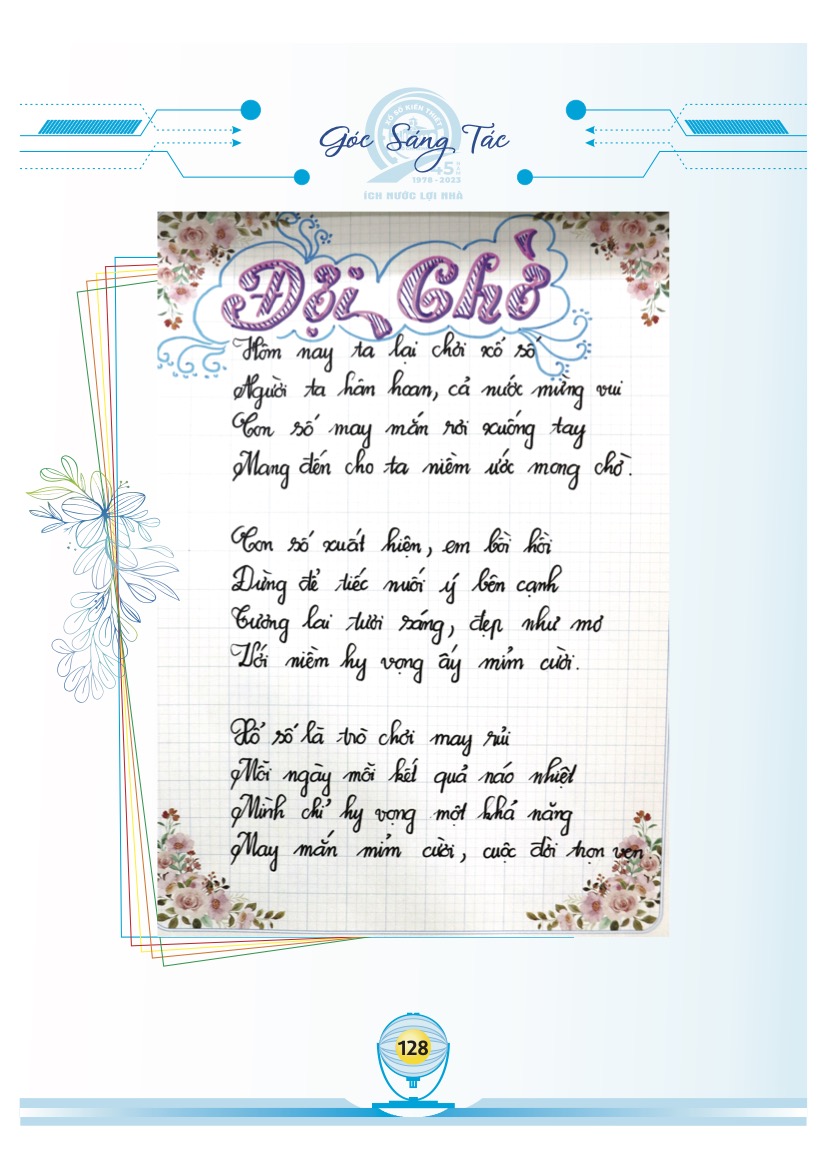 Góc Sáng Tác
XỔ SỐ KIẾN THIẾT
45
1978 - 2023
ÍCH NƯỚC LỢI NHÀ
Đợi Chờ
Hôm nay ta lại chơi xổ số
Người ta hân hoan, cả nước mừng vui
Con số may mắn rơi xuống tay
Mang đến cho ta niềm ước mong chờ.
Con số xuất hiện, em bồi hồi
Đừng để tiếc nuối ý bên cạnh
Tương lai tươi sáng, đẹp như mơ
Với niềm hy vọng ấy mỉm cười.
Xổ số là trò chơi may rủi
Mỗi ngày mỗi kết quả náo nhiệt
Mình chỉ hy vọng một khả năng
May mắn mỉm cười, cuộc đời trọn vẹn
128